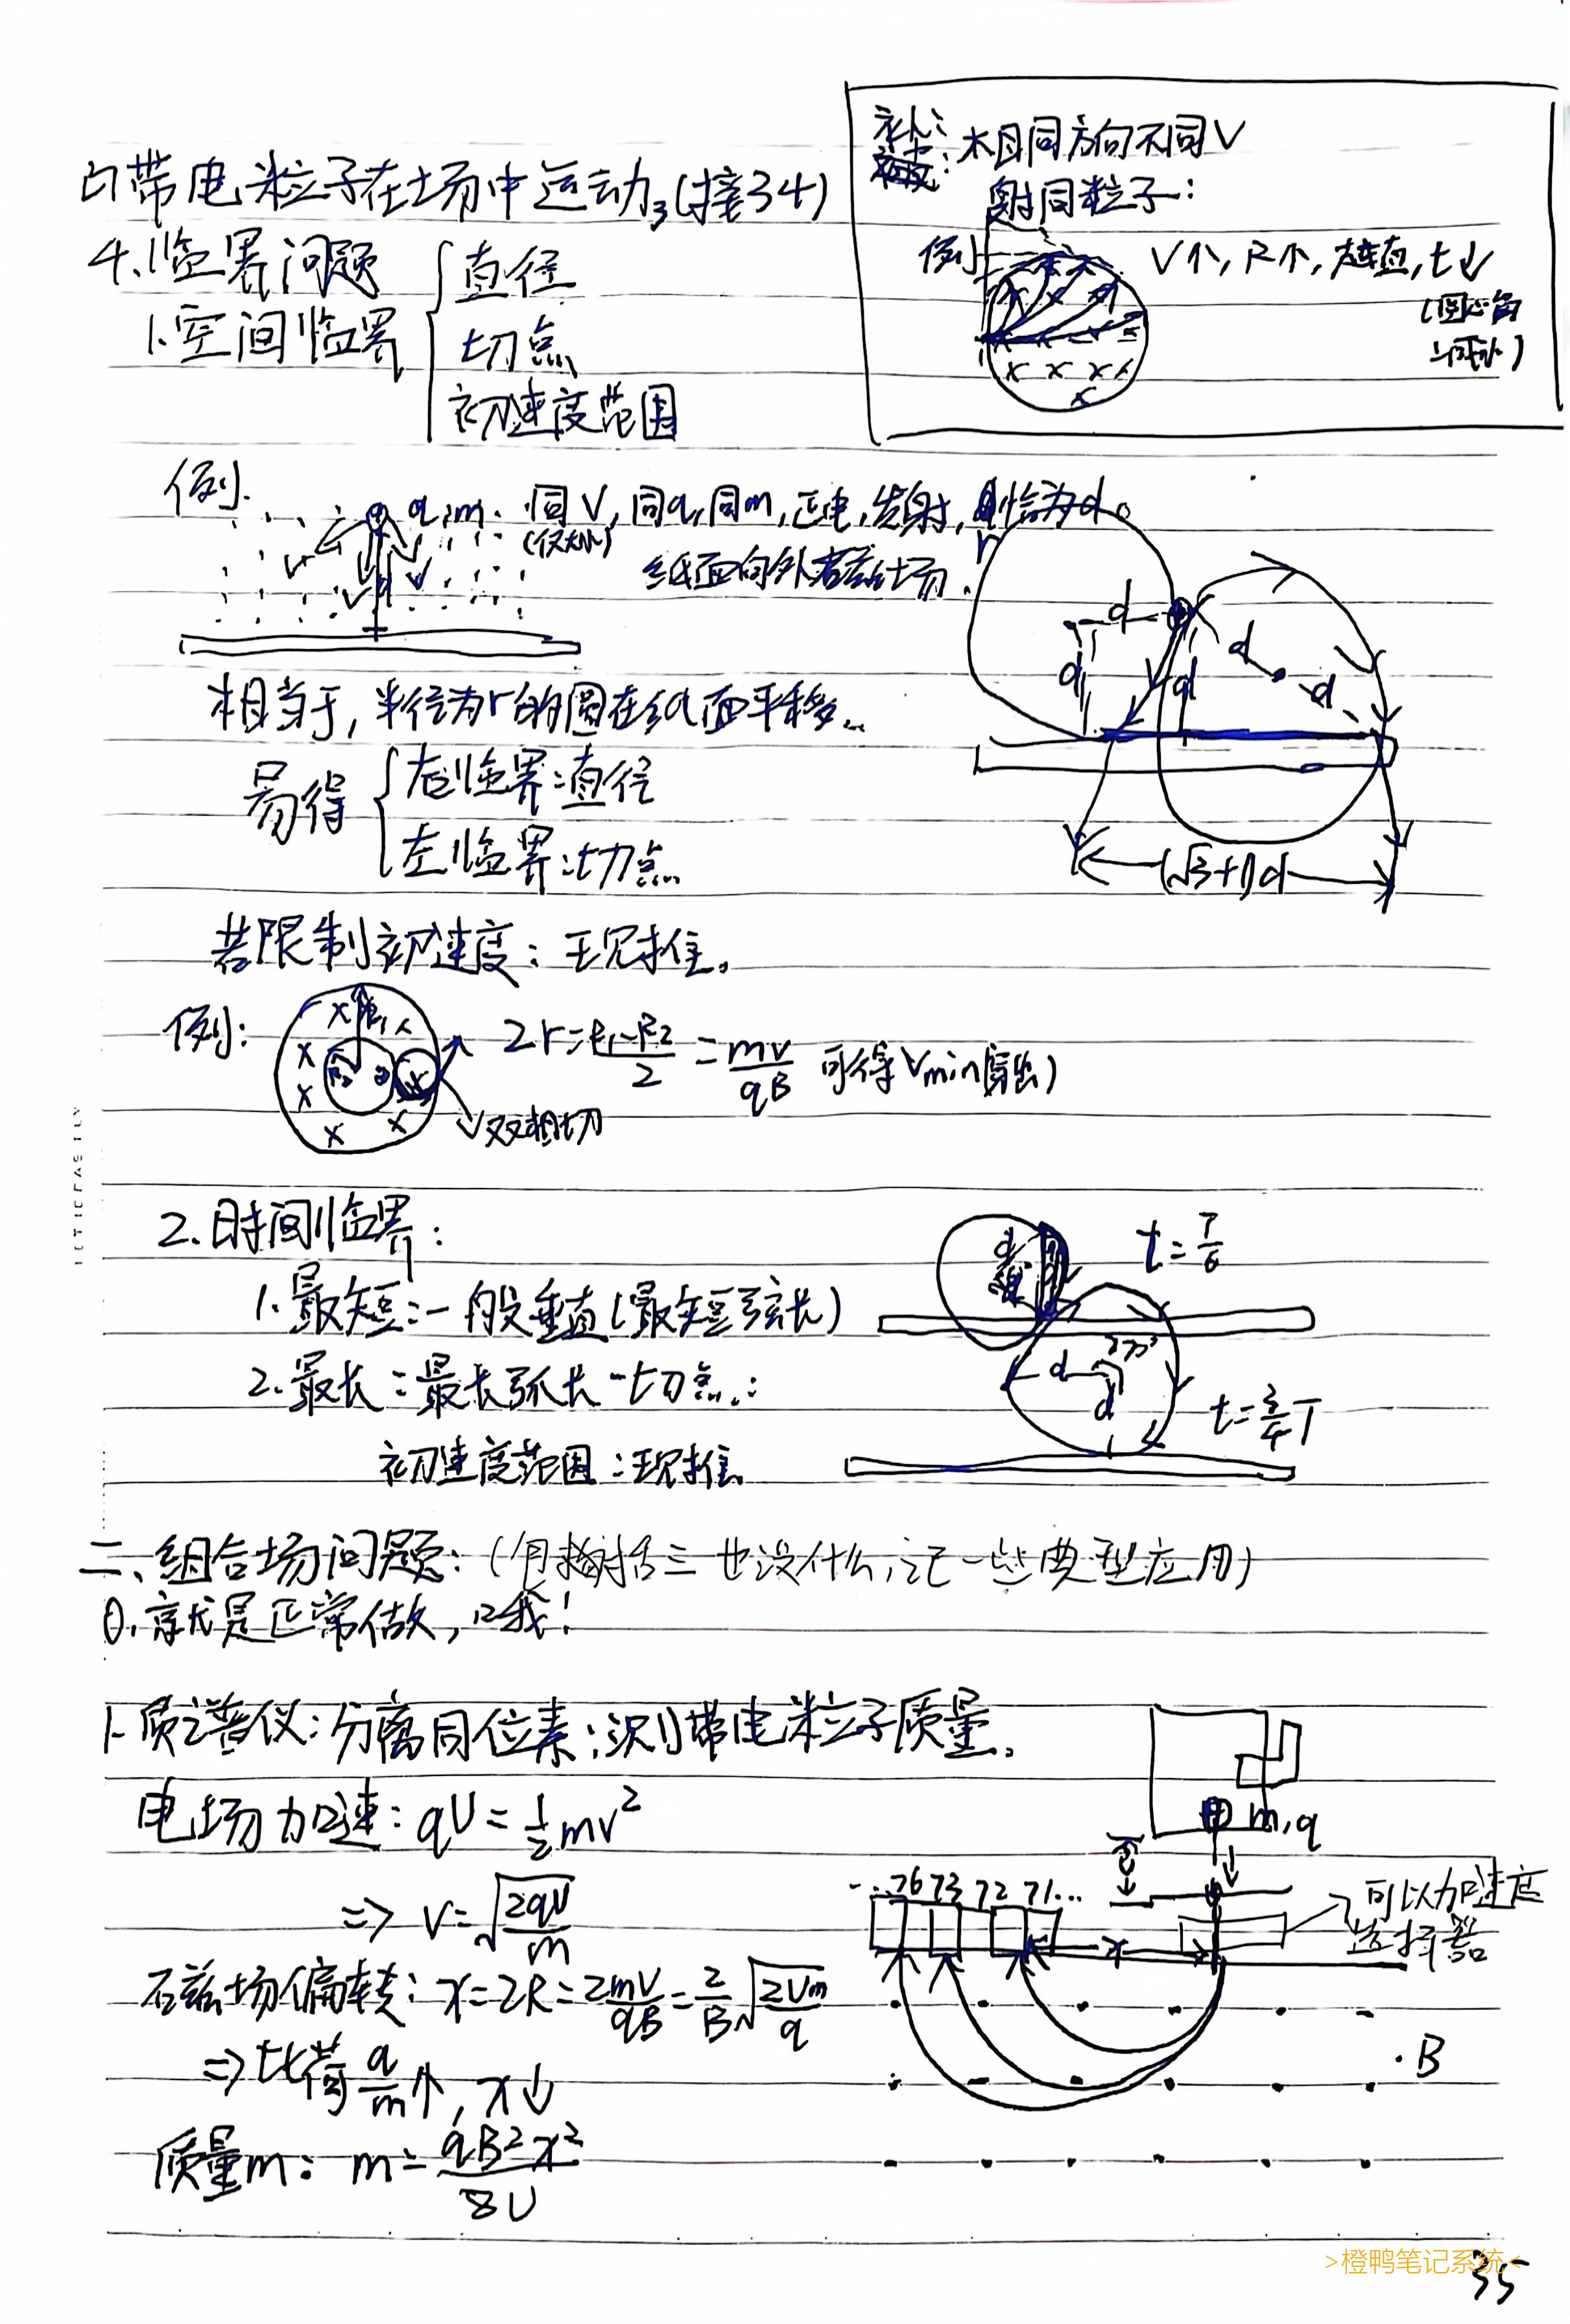 带电粒子在场中运动3(接34)
补:相同方向不同V
射同粒子:
例
V↑,R↑,越直,t↓
(圆心角
减小)
4.临界问题
1.空间临界
直径
切点
初速度范围
例.
q,m.同V,同q,同m,正电,发射,r恰为d。
(仅大小)
纸面向外磁场.
相当于,半径为r的圆在纸面平移.
易得
右临界:直径
左临界:切点.
d
d
d
d
d
(√3+1)d
若限制初速度:现推。
例:
R1
R2
2r=R1-R2/2=mv/qB 可得Vmin(穿出)
双相切
2.时间临界:
1.最短:一般垂直(最短弦长)
t=T/6
2.最长:最长弧长-切点.:
d
270°
d
t=3/4T
初速度范围:现推.
二、组合场问题:(包括三也没什么,记一些典型应用)
0.就是正常做,口我!
1.质谱仪:分离同位素;测带电粒子质量.
电场加速:qU=1/2mv²
m,q
⇒ v=√2qU/m
...76 73 72 71...
可以加速度
选择器
x
磁场偏转:x=2R=2mV/qB=2/B√2Um/q
⇒比荷q/m↑,x↓
·B
质量m:m=qB²x²/8U
>橙鸭笔记系统<
35